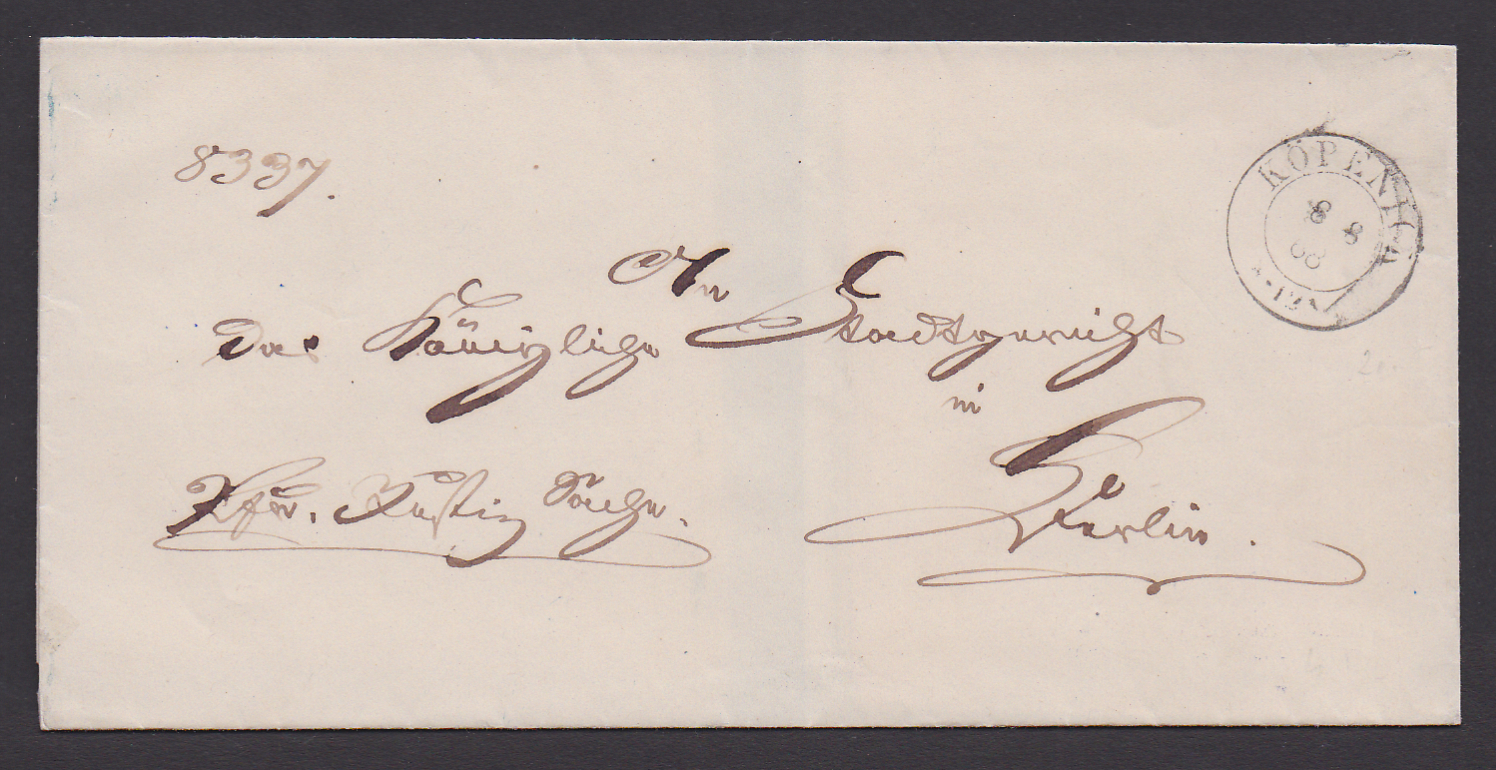 8337.
KÖPENICK
8 8
68
An
das Königliche Stadtgericht
in
Berlin.
Justiz Sache.